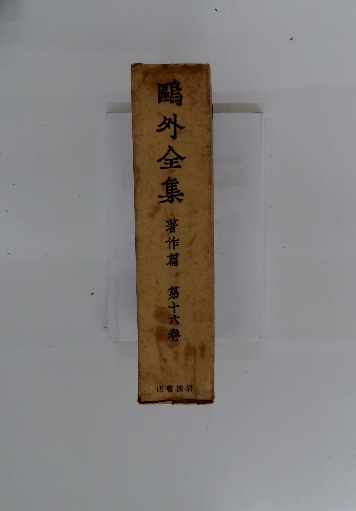 鷗外全集
著作篇 第十六卷
岩波書店